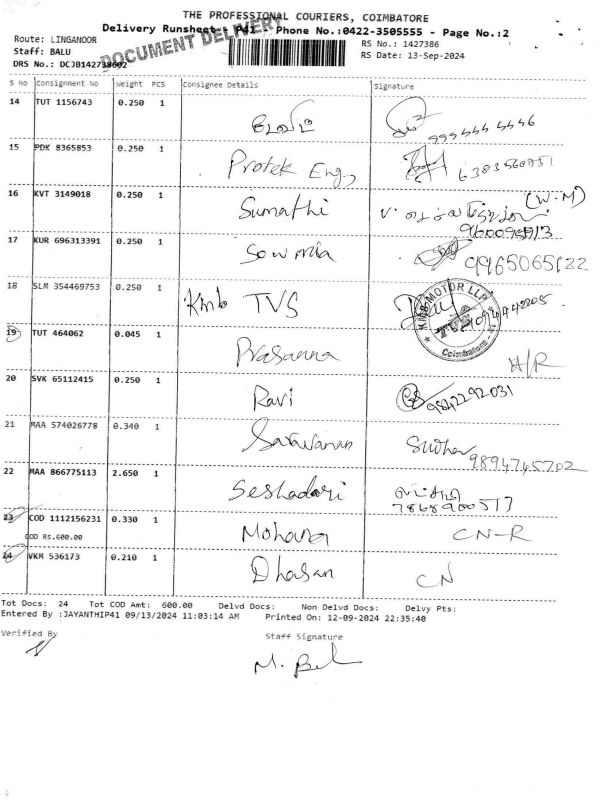 THE PROFESSIONAL COURIERS, COIMBATORE
Delivery Runsheet: P41 - Phone No.:0422-3505555 - Page No.:2
DOCUMENT DELIVERY
Route: LINGANOOR
RS No.: 1427386
Staff: BALU
RS Date: 13-Sep-2024
DRS No.: DCJB142738602
S No Consignment No Weight PCS Consignee Details Signature
14 TUT 1156743 0.250 1
15 PDK 8365853 0.250 1 Protek Eng,
16 KVT 3149018 0.250 1 Sumathi (W.M)
17 KUR 696313391 0.250 1 Sowmia 9965065122
18 SLM 354469753 0.250 1 Kmb TVS
KMB MOTOR LLP
TVS
Coimbatore
19 TUT 464062 0.045 1 Prasanna H/R
20 SVK 65112415 0.250 1 Ravi 9842292031
21 MAA 574026778 0.340 1 Saravanan Sudha 9894745702
22 MAA 866775113 2.650 1 Seshadari
7868900517
23 COD 1112156231 0.330 1 Mohana CN-R
COD Rs.600.00
24 VKM 536173 0.210 1 Dhasan CN
Tot Docs: 24 Tot COD Amt: 600.00 Delvd Docs: Non Delvd Docs: Delvy Pts:
Entered By :JAYANTHIP41 09/13/2024 11:03:14 AM Printed On: 12-09-2024 22:35:40
Verified By Staff Signature